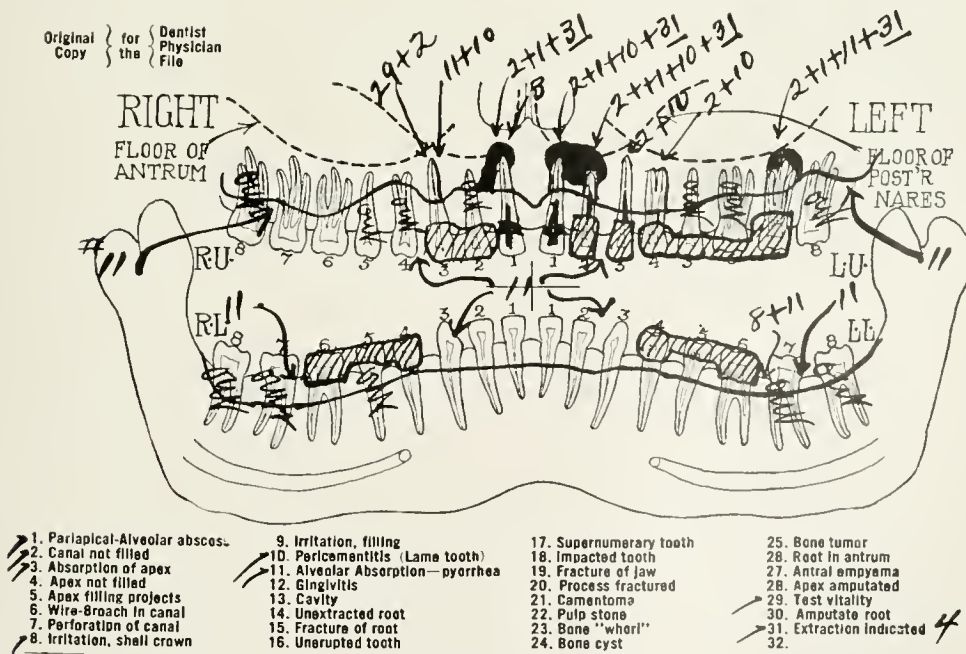 Original Copy } for the { Dentist Physician File
29+2
11+10
2+1+31
8
2+1+10+31
2++1+10+31
2+10
2+1+11+31
RIGHT
LEFT
FLOOR OF ANTRUM
FLOOR OF POST'R NARES
8 7 6 5 4 3 2 1 1 3 4 5 6 8
11
RU
LU
11
11
RL
11
8+11
11
LL
8 6 5 4 3 2 1 1 2 3 4 7 8
1. Pariapical-Alveolar abscess
2. Canal not filled
3. Absorption of apex
4. Apex not filled
5. Apex filling projects
6. Wire-Broach in canal
7. Perforation of canal
8. Irritation, shell crown
9. Irritation, filling
10. Pericementitis (Lame tooth)
11. Alveolar Absorption—pyorrhea
12. Gingivitis
13. Cavity
14. Unextracted root
15. Fracture of root
16. Unerupted tooth
17. Supernumerary tooth
18. Impacted tooth
19. Fracture of jaw
20. Process fractured
21. Camentoma
22. Pulp stone
23. Bone "whorl"
24. Bone cyst
25. Bone tumor
28. Root in antrum
27. Antral empyema
28. Apex amputated
29. Test vitality
30. Amputate root
31. Extraction indicated 4
32.